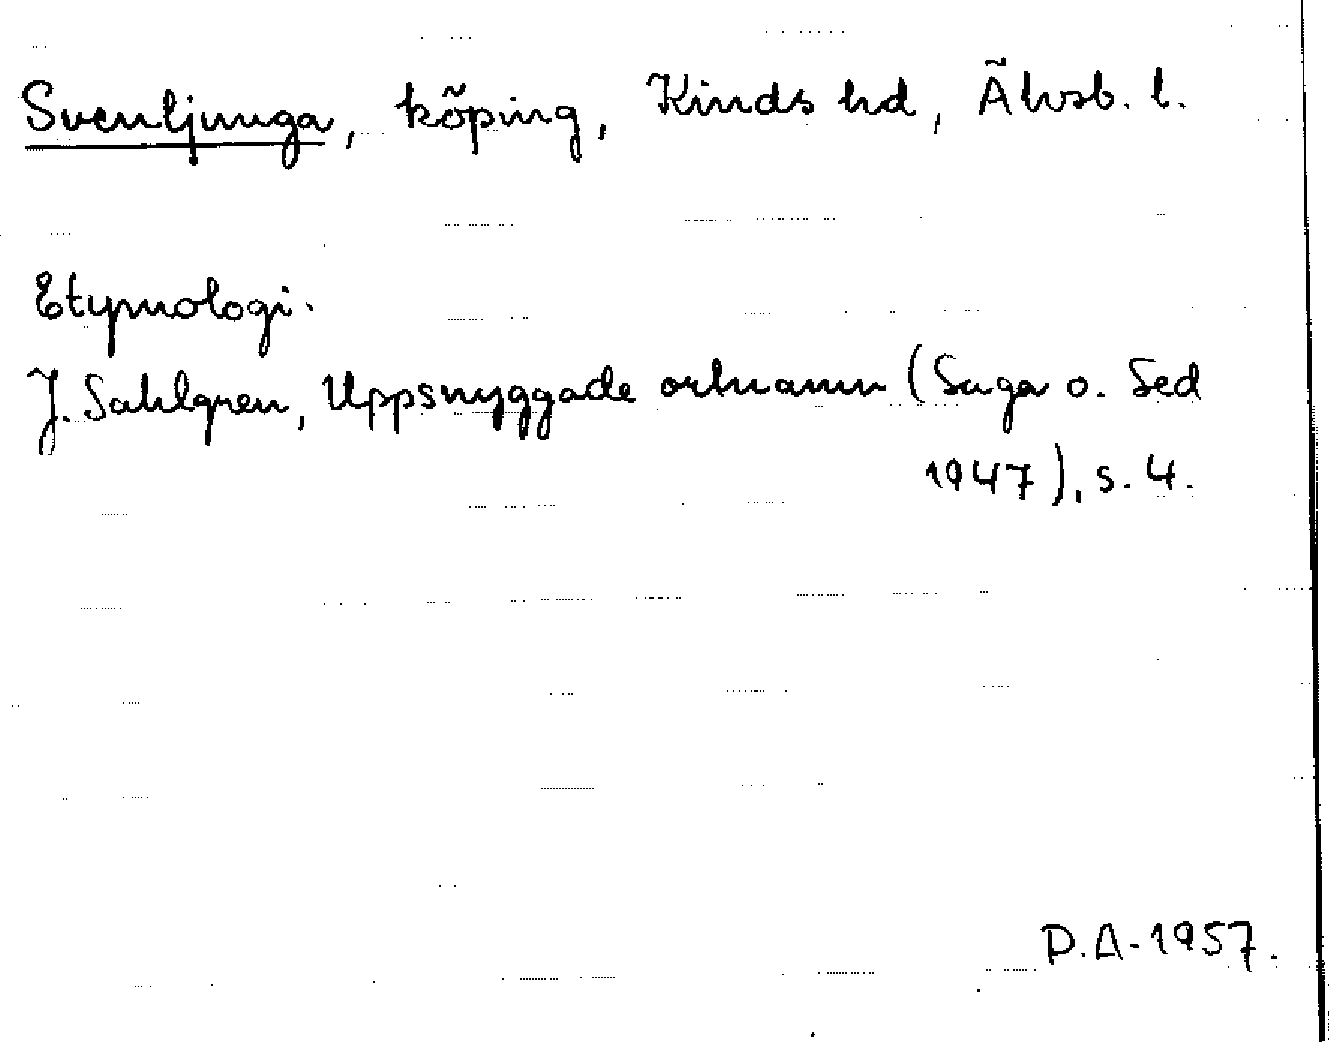 Svenljunga, köping, Kinds hd, Älvsb. l.
Etymologi.
J. Sahlgren, Uppsnyggade ortnamn (Saga o. Sed
1947), s. 4.
P.A-1957.